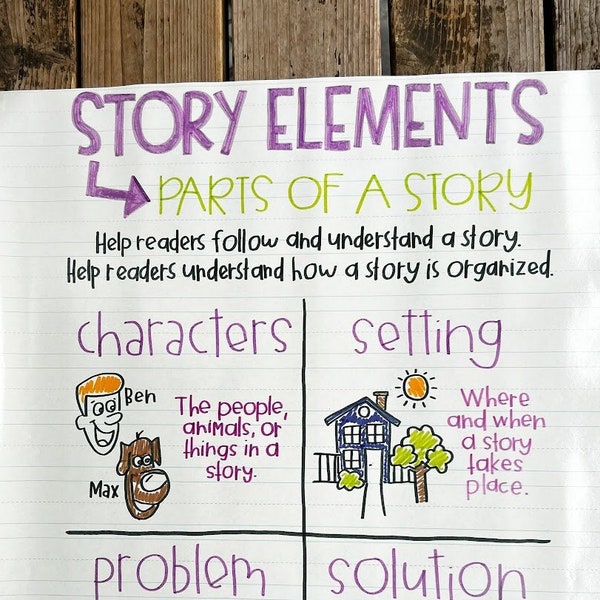 STORY ELEMENTS
PARTS OF A STORY
Help readers follow and understand a story.
Help readers understand how a story is organized.
characters
Ben
Max
The people,
animals, or
things in a
story.
setting
Where
and when
a story
takes
place.
problem
solution